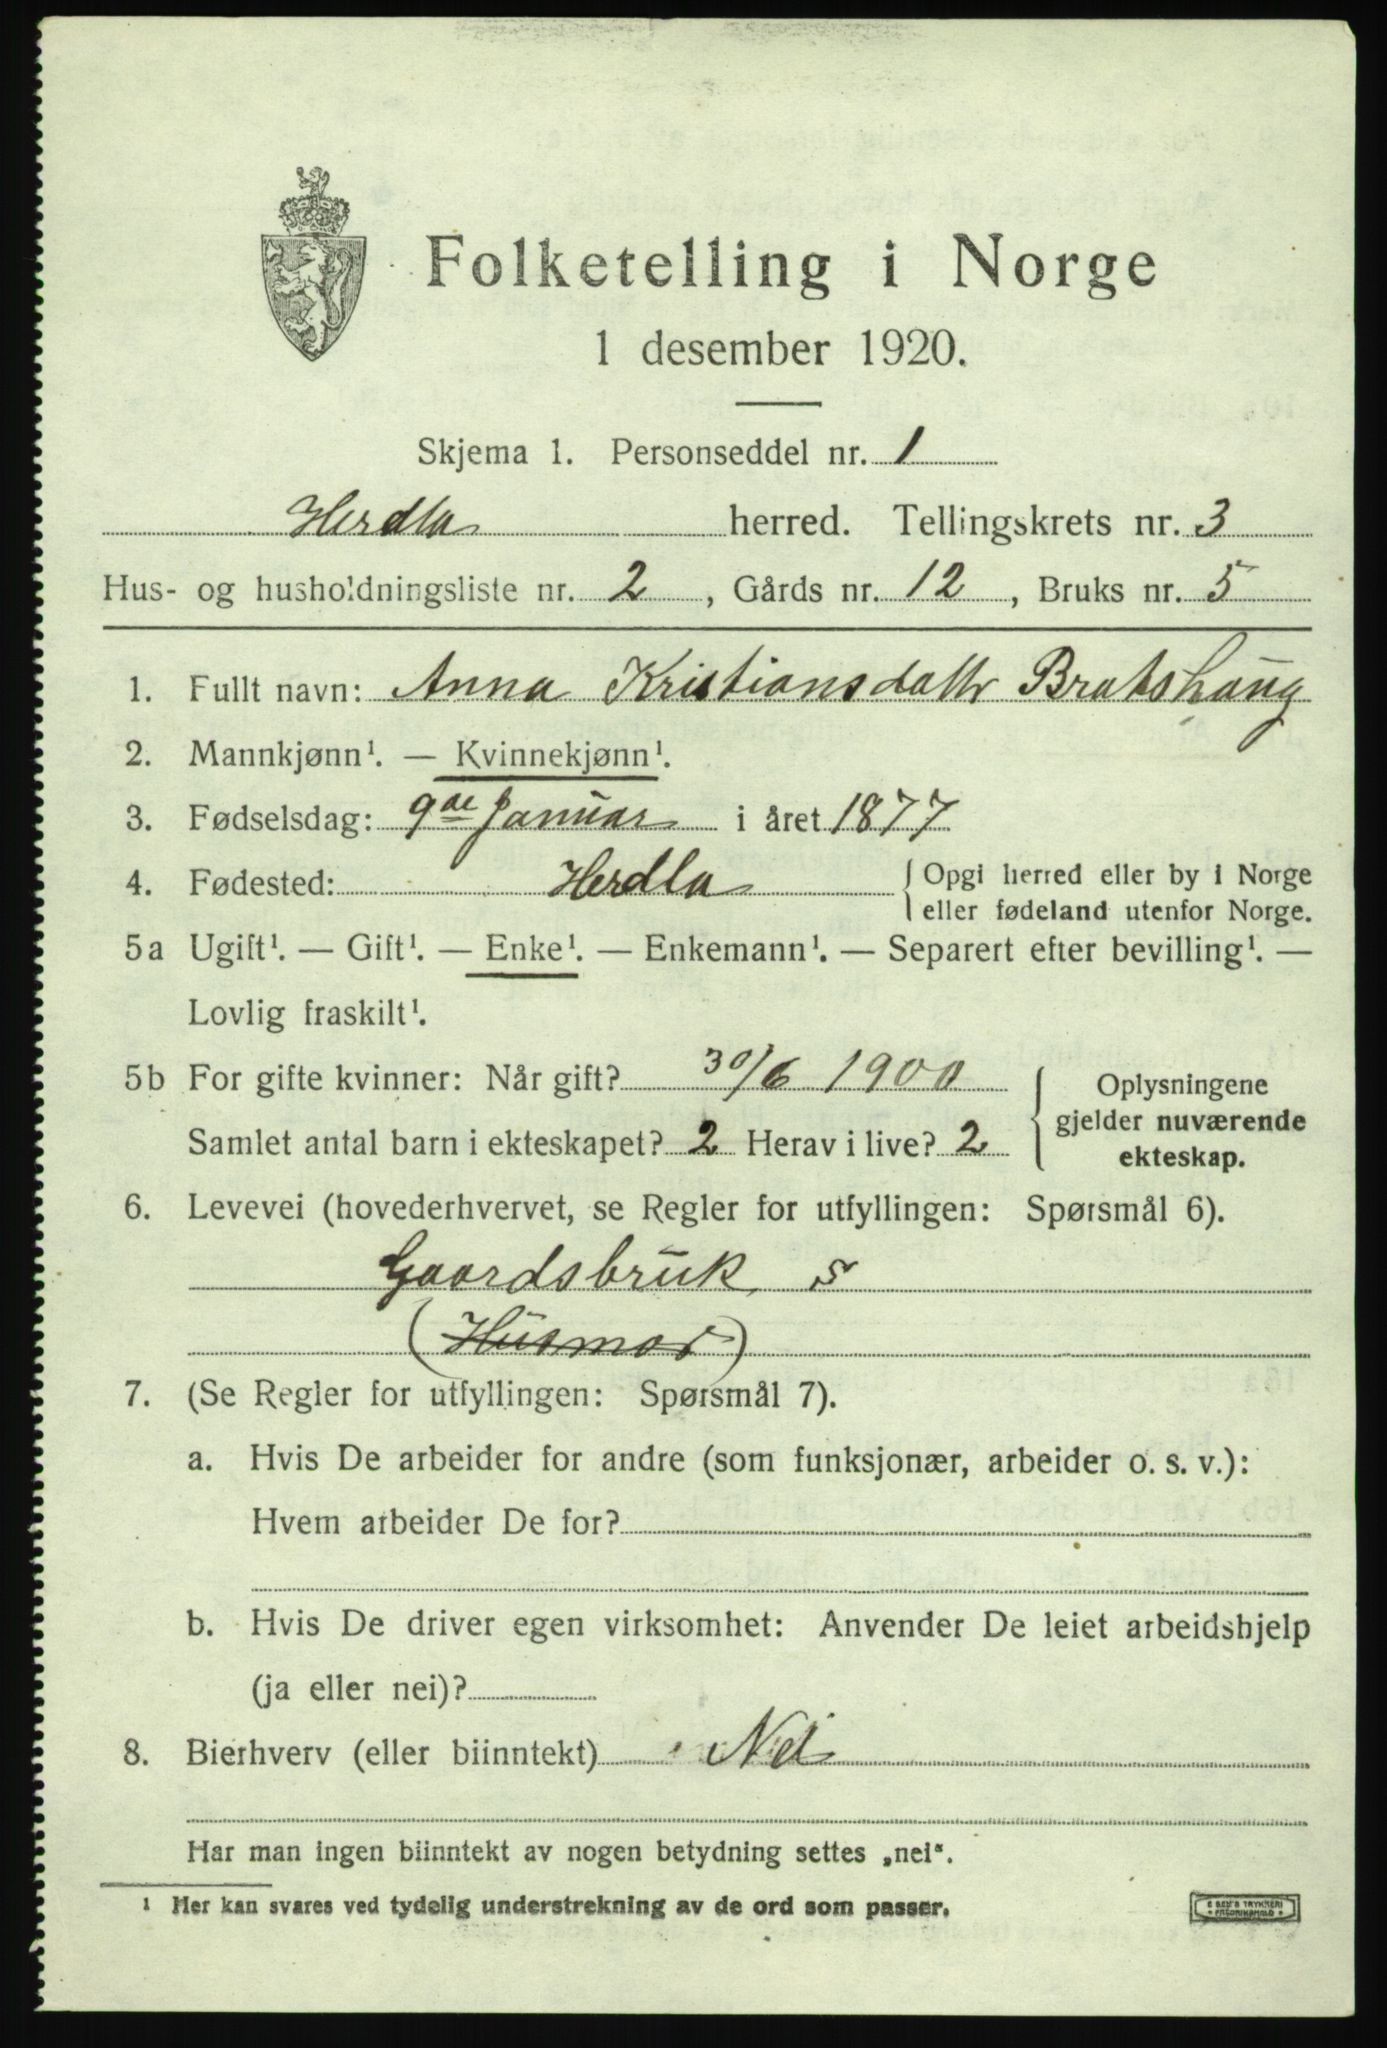 Folketelling i Norge
1 desember 1920.
Skjema 1. Personseddel nr. 1
Herdla herred. Tellingskrets nr. 3
Hus- og husholdningsliste nr. 2, Gårds nr. 12, Bruks nr. 5
1. Fullt navn: Anna Kristiansdattr Bratshaug
2. Mannkjønn¹. — Kvinnekjønn¹.
3. Fødselsdag: 9de Januar i året 1877
4. Fødested: Herdla { Opgi herred eller by i Norge
eller fødeland utenfor Norge.
5a Ugift¹. — Gift¹. — Enke¹. — Enkemann¹. — Separert efter bevilling¹. —
Lovlig fraskilt¹.
5b For gifte kvinner: Når gift? 30/6 1900 { Oplysningene
gjelder nuværende
ekteskap.
Samlet antal barn i ekteskapet? 2 Herav i live? 2
6. Levevei (hovederhvervet, se Regler for utfyllingen: Spørsmål 6).
Gaardsbruk s
(Husmor)
7. (Se Regler for utfyllingen: Spørsmål 7).
a. Hvis De arbeider for andre (som funksjonær, arbeider o. s. v.):
Hvem arbeider De for?
b. Hvis De driver egen virksomhet: Anvender De leiet arbeidshjelp
(ja eller nei)?
8. Bierhverv (eller biinntekt) Nei
Har man ingen biinntekt av nogen betydning settes „nei“.
¹ Her kan svares ved tydelig understrekning av de ord som passer.